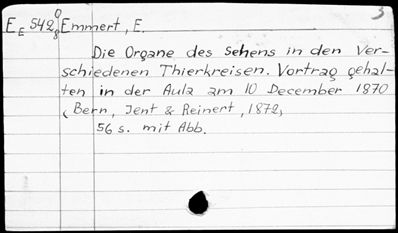 3
E_E 542 0/8 Emmert, E.
Die Organe des Sehens in den Ver-
schiedenen Thierkreisen. Vortrag gehal-
ten in der Aula am 10 December 1870
(Bern, Jent & Reinert, 1872,
56 s. mit Abb.